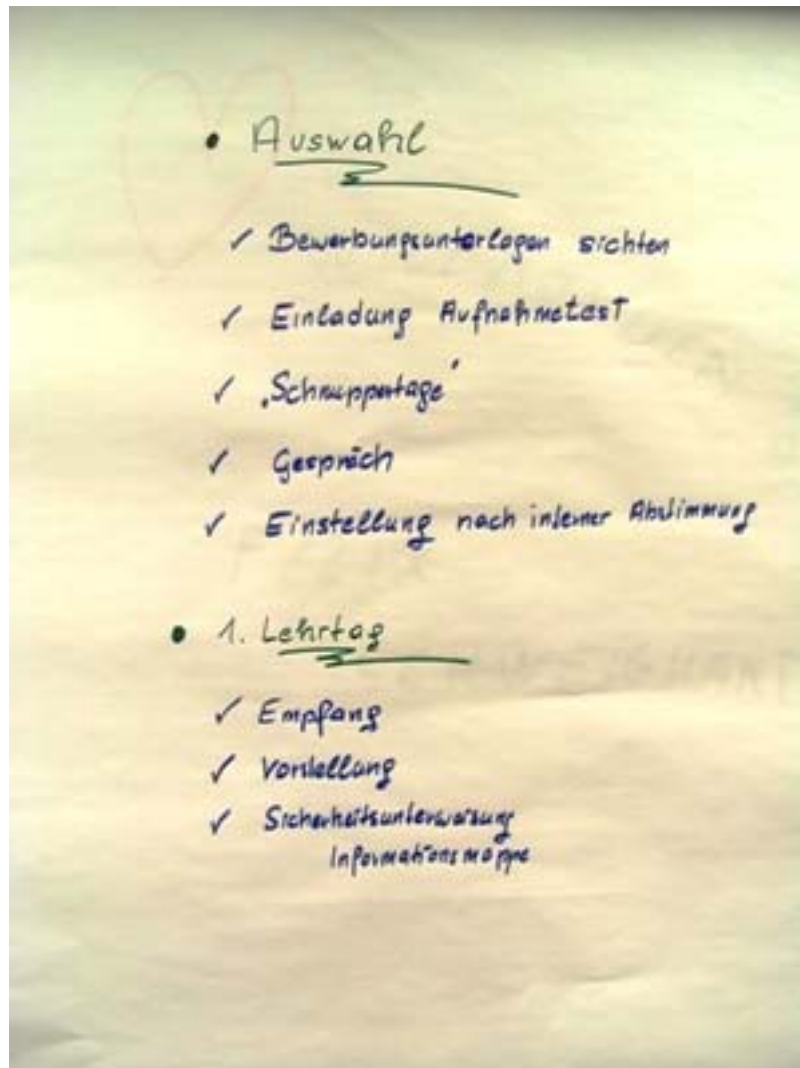 • Auswahl
✓ Bewerbungsunterlagen sichten
✓ Einladung Aufnahmetest
✓ „Schnuppertage"
✓ Gespräch
✓ Einstellung nach interner Abstimmung
• 1. Lehrtag
✓ Empfang
✓ Vorstellung
✓ Sicherheitsunterweisung
Informationsmappe